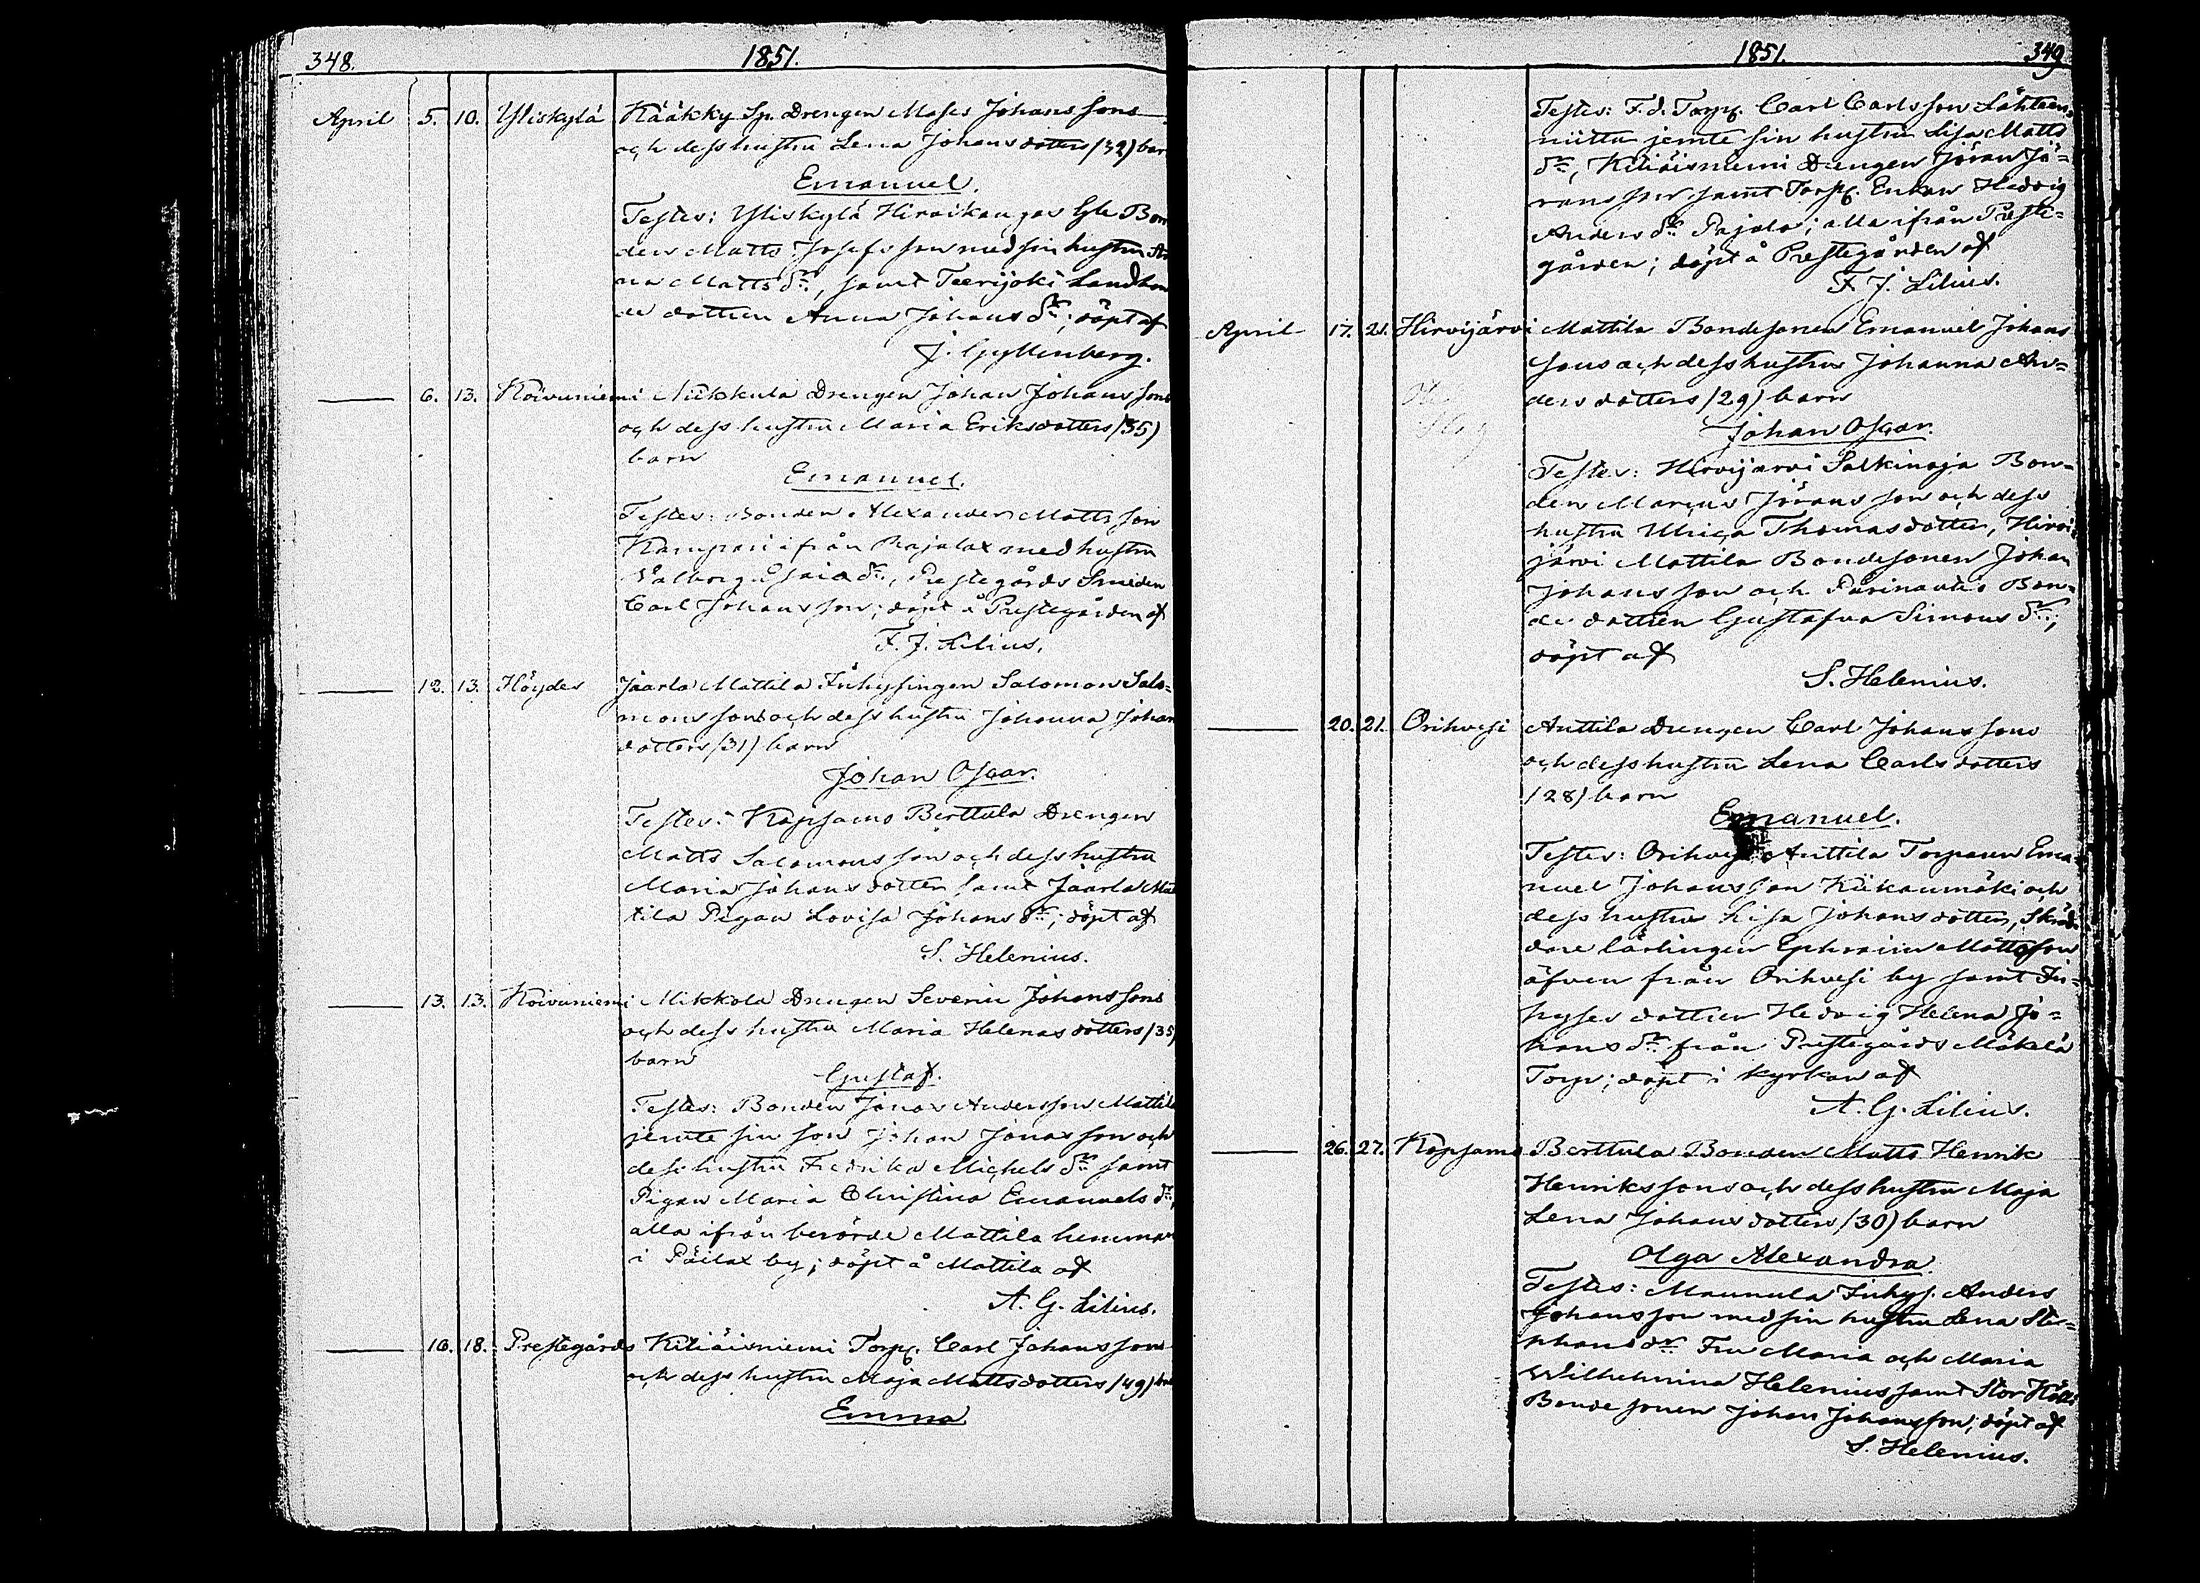 348.
1851.
April 5. 10. Yliskylä Kääkky Sp. Drengen Moses Johanssons
och dess hustru Lena Johansdotters (32) barn
Emanuel.
Testes: Yliskylä Hirvikangas Gle Bon
den Matts Josefsson med sin hustru An
na Matts dr, samt Teerijoki Landbon
de dottern Anna Johans dr; döpt af
J. Gyllenberg.
6. 13. Koivuniemi Mikkula Drengen Johan Johanssons
och dess hustru Maria Eriksdotters (35)
barn
Emanuel.
Testes: Bonden Alexander Mattsson
Kamppari ifrån Pajalax med hustru
Valborg Esaiæ dr, Prestegårds Smeden
Carl Johansson; döpt å Prestegården af
F. J. Lilius.
12. 13. Höydes Jaarla Mattila Inhysingen Salomon Salo-
monssons och dess hustru Johanna Johans
dotters (31) barn
Johan Oscar.
Testes: Kapsamo Berttula Drengen
Matts Salomonsson och dess hustru
Maria Johansdotter samt Jaarla Mat
tila Pigan Lovisa Johans dr; döpt af
S. Helenius.
13. 13. Koivuniemi Mikkola Drengen Severin Johanssons
och dess hustru Maria Helenas dotters (35)
barn
Gustaf.
Testes: Bonden Jonas Andersson Mattila
jemte sin son Johan Jonasson och
dess hustru Fredrika Michels dr samt
Pigan Maria Christina Emanuels dr,
alla ifrån berörde Mattila hemman
i Päilax by; döpt å Mattila af
A. G. Lilius.
16. 18. Prestegårds Kiliäisniemi Torp. Carl Johanssons
och dess hustru Maja Mattsdotters (49) barn
Emma
1851.
349
Testes: F.d. Torp. Carl Carlsson Lähteen-
niitta jemte sin hustru Lisa Matts
dr, Kiliäisniemi Drengen Jöran Jö-
ransson samt Torp. Enkan Hedvig
Anders dr Pajala; alla ifrån Preste-
gården; döpt å Prestegården af
F. J. Lilius.
April 17. 21. Hirvijärvi Mattila Bondesonen Emanuel Johans
sons och dess hustru Johanna An-
ders dotters (29) barn
Johan Oscar.
Testes: Hirvijärvi Salkinoja Bon-
den Marcus Jöransson och dess
hustru Ulrica Thomasdotter, Hirvi-
järvi Mattila Bondesonen Johan
Johansson och Pärinautio Bon-
de dottern Gustafva Simons dr;
döpt af
S. Helenius.
20. 21. Orihvesi Anttila Drengen Carl Johanssons
och dess hustru Lena Carlsdotters
(28) barn
Emanuel.
Testes: Orihvesi Anttila Torparen Ema-
nuel Johansson Kiikanmäki och
dess hustru Lisa Johansdotter, Skräd-
dare lärlingen Ephraim Mattsson
äfven från Orihvesi by samt In-
hyses dottren Hedvig Helena Jo-
hans dr från Prestegårds Mäkelä
Torp; döpt i kyrkan af
A. G. Lilius.
26. 27. Kapsamo Berttula Bonden Matts Henrik
Henrikssons och dess hustru Maja
Lena Johansdotters (30) barn
Olga Alexandra
Testes: Maunula Inhys. Anders
Johansson med sin hustru Lena Ste-
phans dr Fru Maria och Maria
Wilhelmina Helenius, samt Stor
Bonde sonen Johan Johansson; döpt af
S. Helenius.